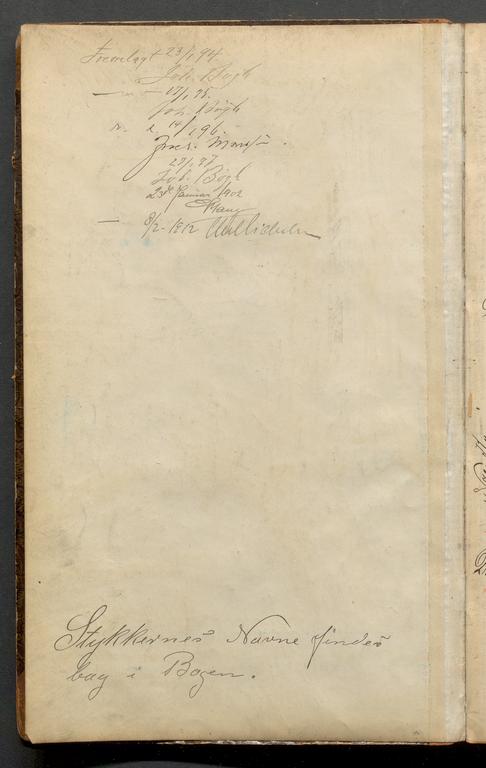 Fremlagt 23/1 94
Joh. Bøgh
— " — 17/1 95.
Joh. Bøgh
14/1 96.
27/1 97
Joh. Bøgh
23de Januar 1902
— 8/2 - 1912
Stykkernes Navne findes
bag i Bogen.